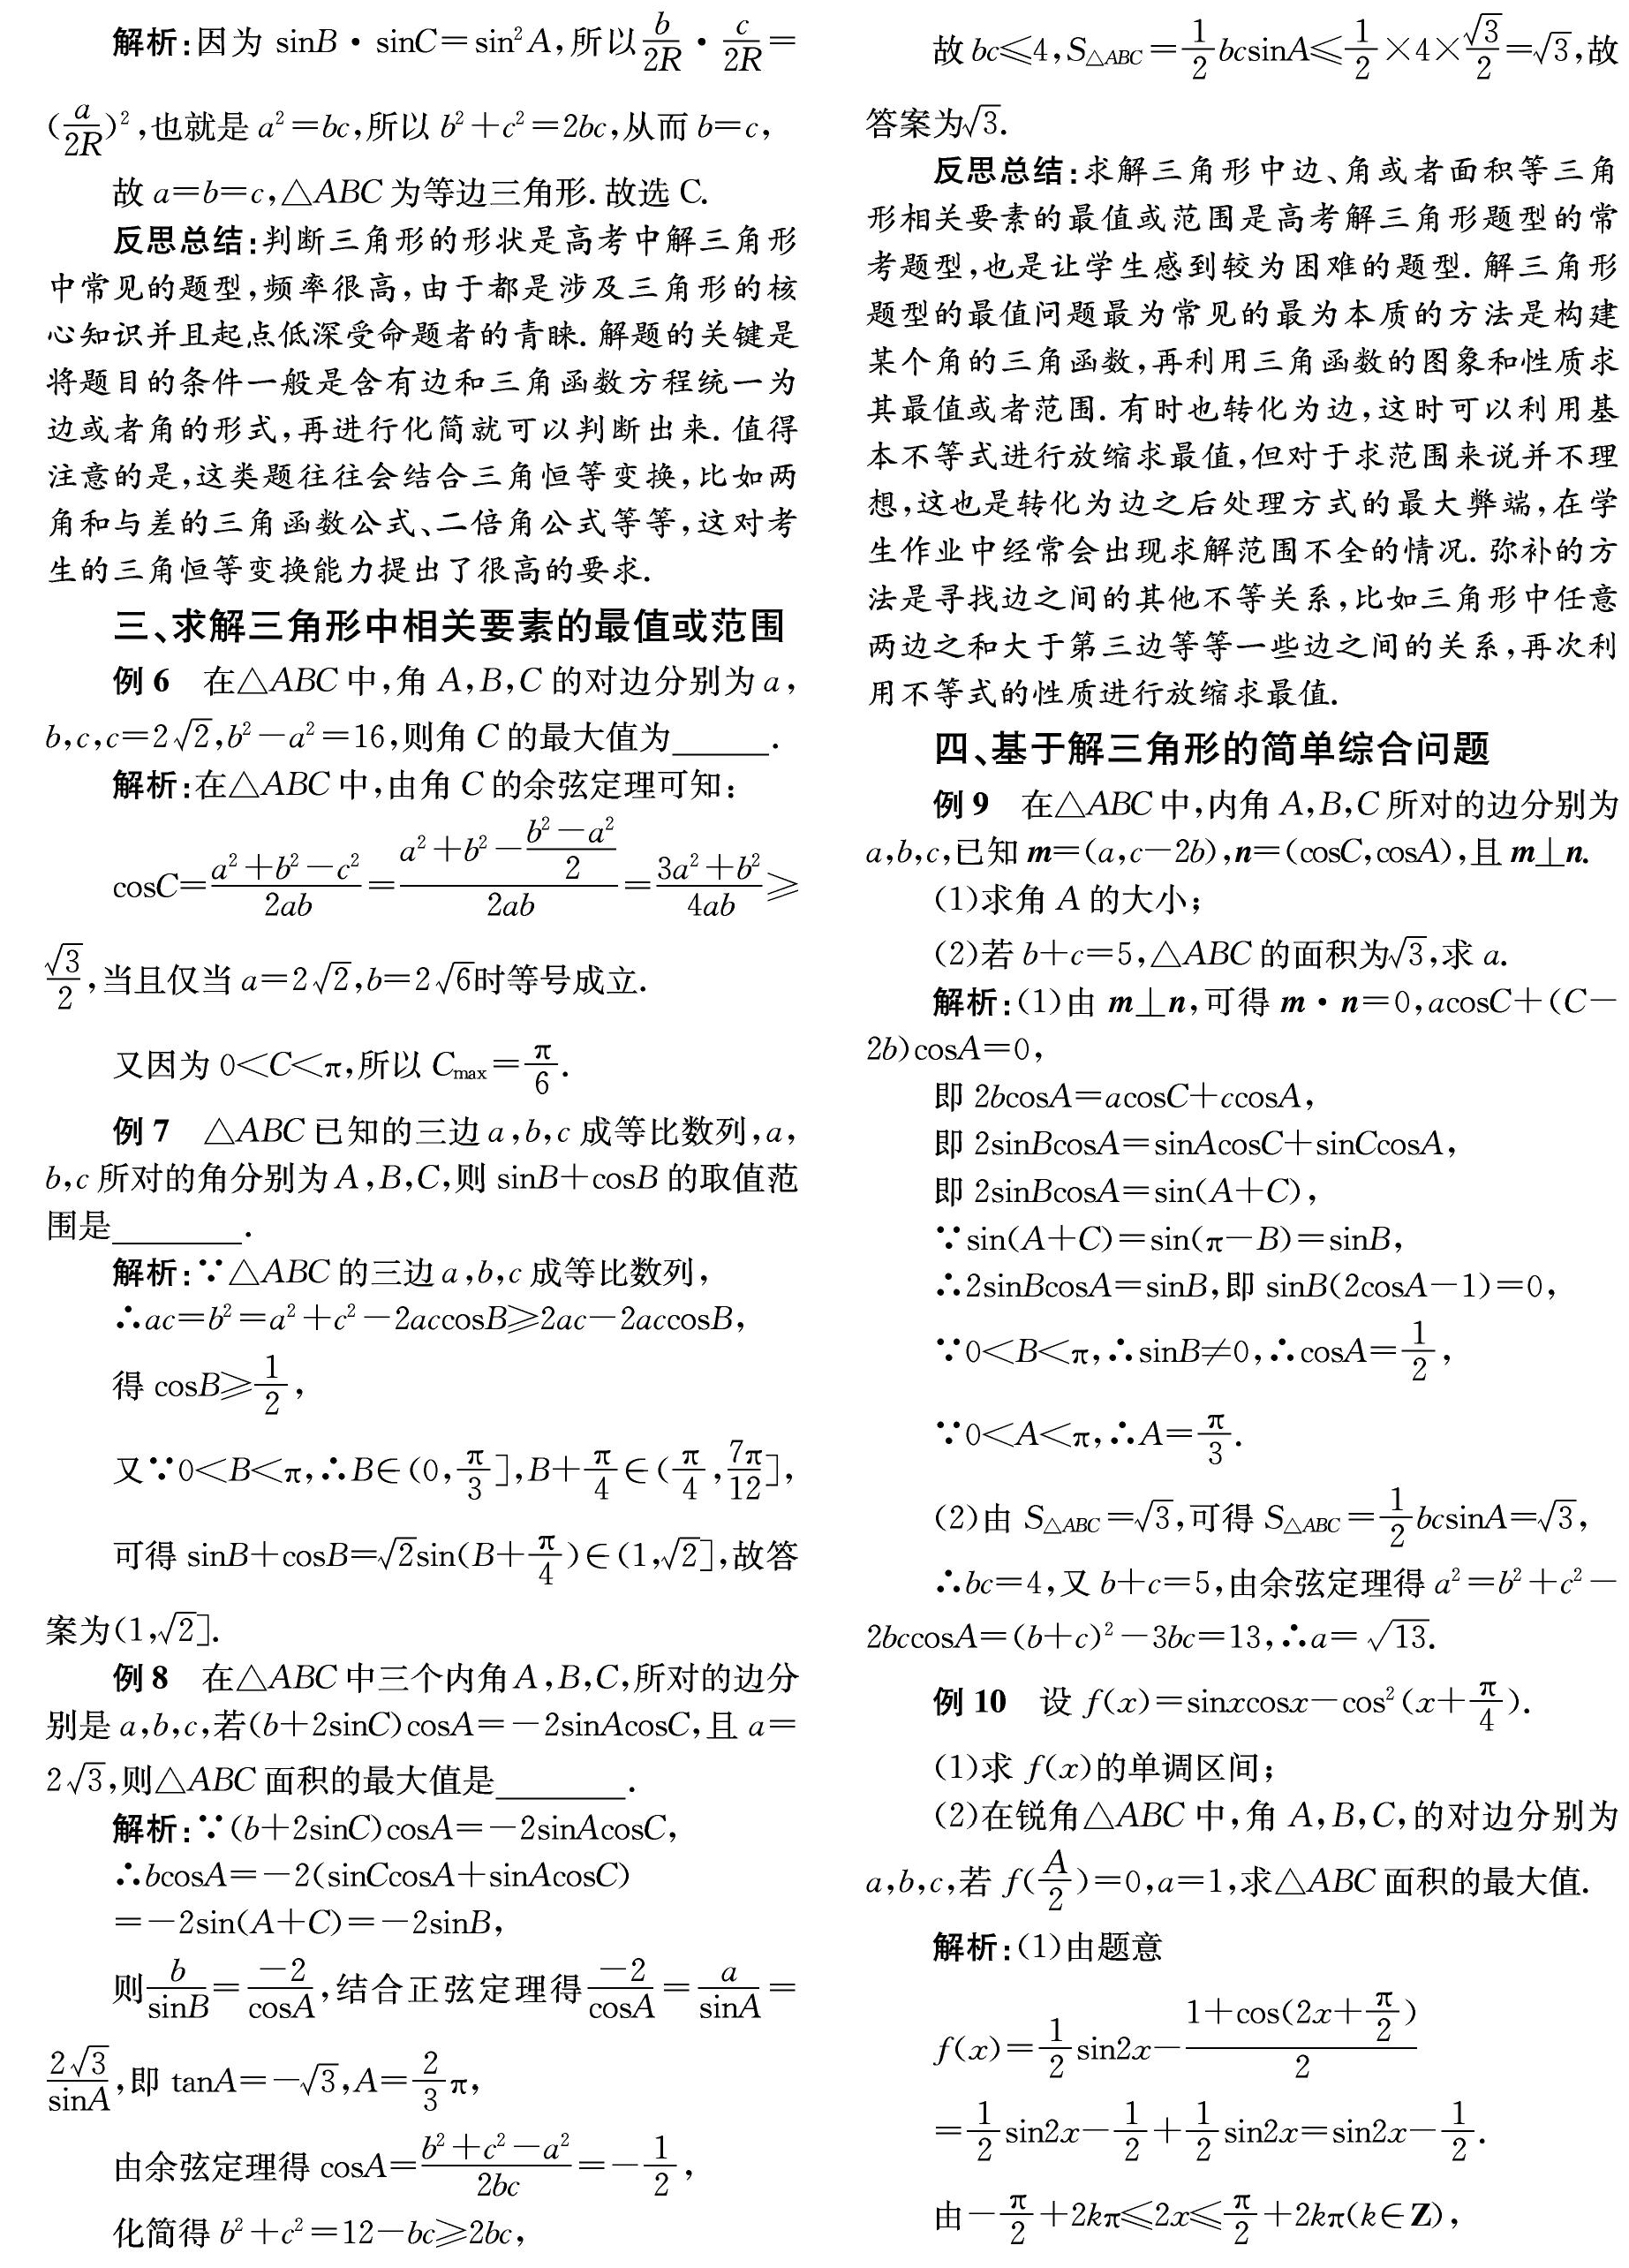 解析:因为 sinB·sinC=sin²A,所以 b/2R · c/2R =
(a/2R)²,也就是 a²=bc,所以 b²+c²=2bc,从而 b=c,
故 a=b=c,△ABC 为等边三角形. 故选 C.
反思总结:判断三角形的形状是高考中解三角形
中常见的题型,频率很高,由于都是涉及三角形的核
心知识并且起点低深受命题者的青睐. 解题的关键是
将题目的条件一般是含有边和三角函数方程统一为
边或者角的形式,再进行化简就可以判断出来. 值得
注意的是,这类题往往会结合三角恒等变换,比如两
角和与差的三角函数公式、二倍角公式等等,这对考
生的三角恒等变换能力提出了很高的要求.
三、求解三角形中相关要素的最值或范围
例 6 在△ABC 中,角 A,B,C 的对边分别为 a,
b,c,c=2√2,b²−a²=16,则角 C 的最大值为______.
解析:在△ABC 中,由角 C 的余弦定理可知:
cosC=(a²+b²−c²)/2ab=(a²+b²−(b²−a²)/2)/2ab=(3a²+b²)/4ab≥
√3/2,当且仅当 a=2√2,b=2√6时等号成立.
又因为 0<C<π,所以 Cmax=π/6.
例 7 △ABC 已知的三边 a,b,c 成等比数列,a,
b,c 所对的角分别为 A,B,C,则 sinB+cosB 的取值范
围是________.
解析:∵△ABC 的三边 a,b,c 成等比数列,
∴ac=b²=a²+c²−2accosB≥2ac−2accosB,
得 cosB≥1/2,
又∵0<B<π,∴B∈(0,π/3],B+π/4∈(π/4,7π/12],
可得 sinB+cosB=√2sin(B+π/4)∈(1,√2],故答
案为(1,√2].
例 8 在△ABC 中三个内角 A,B,C,所对的边分
别是 a,b,c,若(b+2sinC)cosA=−2sinAcosC,且 a=
2√3,则△ABC 面积的最大值是________.
解析:∵(b+2sinC)cosA=−2sinAcosC,
∴bcosA=−2(sinCcosA+sinAcosC)
=−2sin(A+C)=−2sinB,
则 b/sinB=−2/cosA,结合正弦定理得 −2/cosA=a/sinA=
2√3/sinA,即 tanA=−√3,A=2/3π,
由余弦定理得 cosA=(b²+c²−a²)/2bc=−1/2,
化简得 b²+c²=12−bc≥2bc,
故 bc≤4,S△ABC=1/2bcsinA≤1/2×4×√3/2=√3,故
答案为√3.
反思总结:求解三角形中边、角或者面积等三角
形相关要素的最值或范围是高考解三角形题型的常
考题型,也是让学生感到较为困难的题型. 解三角形
题型的最值问题最为常见的最为本质的方法是构建
某个角的三角函数,再利用三角函数的图象和性质求
其最值或者范围. 有时也转化为边,这时可以利用基
本不等式进行放缩求最值,但对于求范围来说并不理
想,这也是转化为边之后处理方式的最大弊端,在学
生作业中经常会出现求解范围不全的情况. 弥补的方
法是寻找边之间的其他不等关系,比如三角形中任意
两边之和大于第三边等等一些边之间的关系,再次利
用不等式的性质进行放缩求最值.
四、基于解三角形的简单综合问题
例 9 在△ABC 中,内角 A,B,C 所对的边分别为
a,b,c,已知 m=(a,c−2b),n=(cosC,cosA),且 m⊥n.
(1)求角 A 的大小;
(2)若 b+c=5,△ABC 的面积为√3,求 a.
解析:(1)由 m⊥n,可得 m·n=0,acosC+(C−
2b)cosA=0,
即 2bcosA=acosC+ccosA,
即 2sinBcosA=sinAcosC+sinCcosA,
即 2sinBcosA=sin(A+C),
∵sin(A+C)=sin(π−B)=sinB,
∴2sinBcosA=sinB,即 sinB(2cosA−1)=0,
∵0<B<π,∴sinB≠0,∴cosA=1/2,
∵0<A<π,∴A=π/3.
(2)由 S△ABC=√3,可得 S△ABC=1/2bcsinA=√3,
∴bc=4,又 b+c=5,由余弦定理得 a²=b²+c²−
2bccosA=(b+c)²−3bc=13,∴a=√13.
例 10 设 f(x)=sinxcosx−cos²(x+π/4).
(1)求 f(x)的单调区间;
(2)在锐角△ABC 中,角 A,B,C,的对边分别为
a,b,c,若 f(A/2)=0,a=1,求△ABC 面积的最大值.
解析:(1)由题意
f(x)=1/2sin2x−(1+cos(2x+π/2))/2
=1/2sin2x−1/2+1/2sin2x=sin2x−1/2.
由−π/2+2kπ≤2x≤π/2+2kπ(k∈Z),